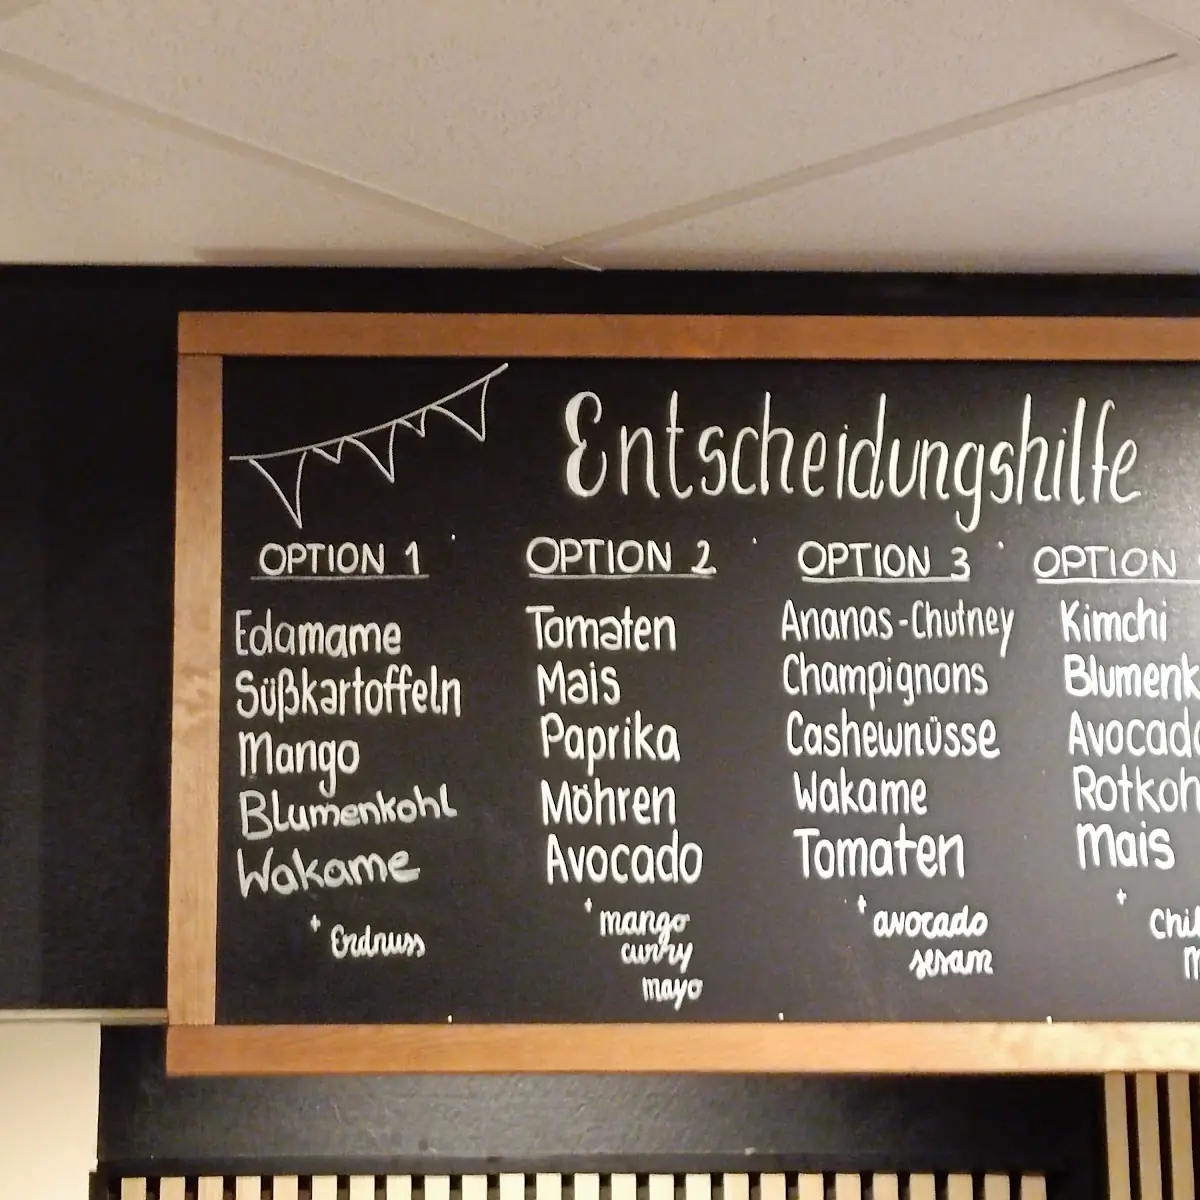 Entscheidungshilfe
OPTION 1
Edamame
Süßkartoffeln
Mango
Blumenkohl
Wakame
+ Erdnuss
OPTION 2
Tomaten
Mais
Paprika
Möhren
Avocado
+ mango
curry
mayo
OPTION 3
Ananas-Chutney
Champignons
Cashewnüsse
Wakame
Tomaten
+ avocado
sesam
OPTION
Kimchi
Mais
+